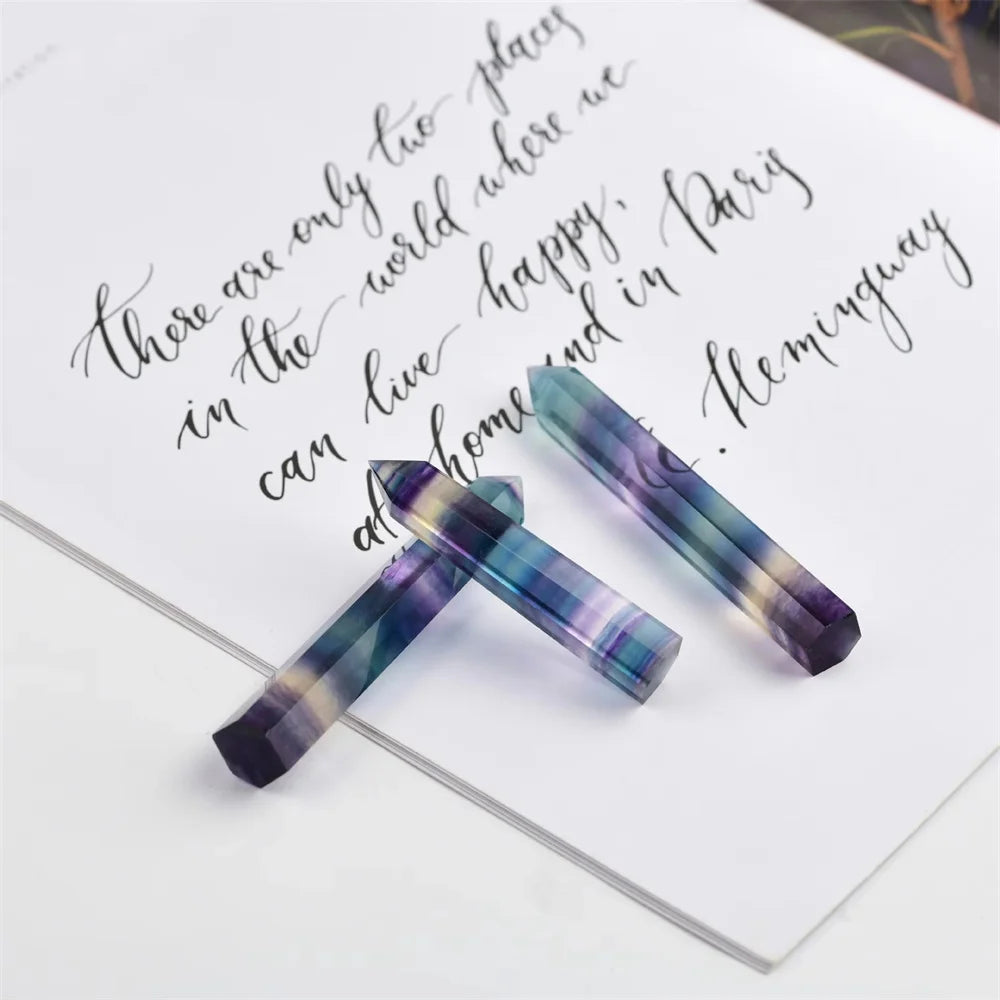 there are only two places
in the world where we
can live happy,
at home and in Paris
E. Hemingway